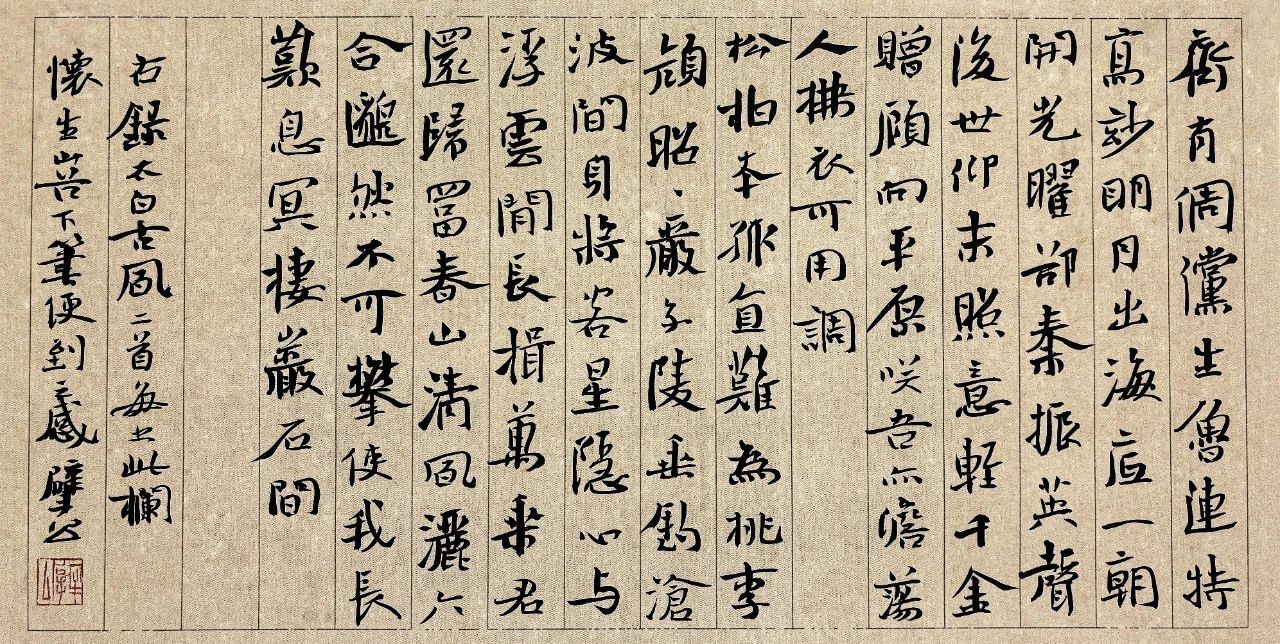 齊有倜儻生魯連特
高妙明月出海底一朝
開光曜郤秦振英聲
後世仰末照意輕千金
贈顧向平原咲吾亦澹蕩
人拂衣可用調
松柏本孤直難為桃李
顔昭〻嚴子陵垂釣滄
波間身將客星隱心与
浮雲閒長揖萬乗君
還歸冨春山清風灑六
合邈然不可攀使我長
歎息冥棲巖石間
右錄太白古風二首每书此欄
懷生苦下筆便到之感擘公